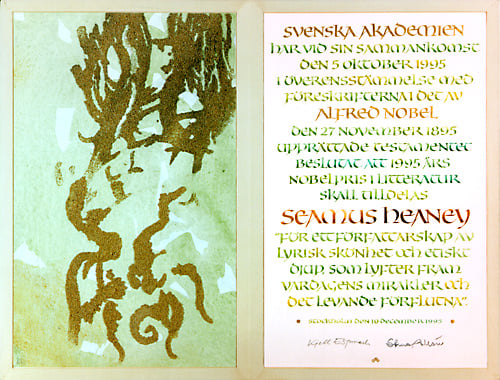 SVENSKA AKADEMIEN
HAR VID SIN SAMMANKOMST
DEN 5 OKTOBER 1995
I ÖVERENSSTÄMMELSE MED
FÖRESKRIFTERNA I DET AV
ALFRED NOBEL
DEN 27 NOVEMBER 1895
UPPRÄTTADE TESTAMENTET
BESLUTAT ATT 1995 ÅRS
NOBELPRIS I LITTERATUR
SKALL TILLDELAS
SEAMUS HEANEY
"FÖR ETT FÖRFATTARSKAP AV
LYRISK SKÖNHET OCH ETISKT
DJUP, SOM LYFTER FRAM
VARDAGENS MIRAKLER OCH
DET LEVANDE FÖRFLUTNA".
• STOCKHOLM DEN 10 DECEMBER 1995 •
Kjell Espmark